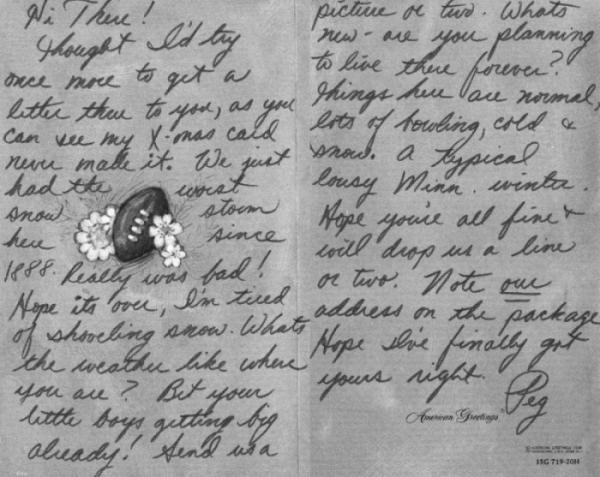 Hi There!
Thought I'd try
once more to get a
letter thru to you, as you
can see my X-mas card
never made it. We just
had the worst
snow storm
here since
1888. Really was bad!
Hope its over, I'm tired
of shoveling snow. Whats
the weather like where
you are? Bet your
little boys getting big
already! Send us a
picture or two. Whats
new - are you planning
to live there forever?
Things here are normal,
lots of bowling, cold &
snow. A typical
lousy Minn. winter.
Hope you're all fine &
will drop us a line
or two. Note our
address on the package
Hope I've finally got
yours right.
Peg
American Greetings
15G 719-20H